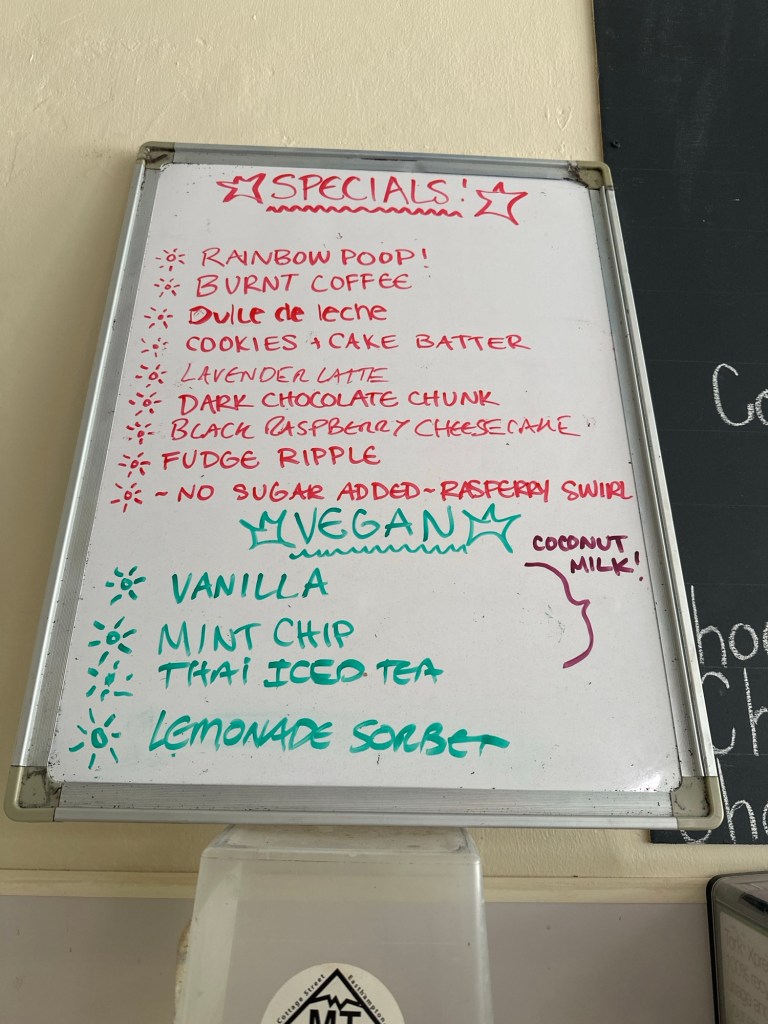 SPECIALS!
RAINBOW POOP!
BURNT COFFEE
Dulce de leche
COOKIES + CAKE BATTER
LAVENDER LATTE
DARK CHOCOLATE CHUNK
BLACK RASPBERRY CHEESECAKE
FUDGE RIPPLE
~NO SUGAR ADDED~RASPERRY SWIRL
VEGAN
COCONUT
MILK!
VANILLA
MINT CHIP
THAI ICED TEA
LEMONADE SORBET
Cottage Street
Easthampton
MT